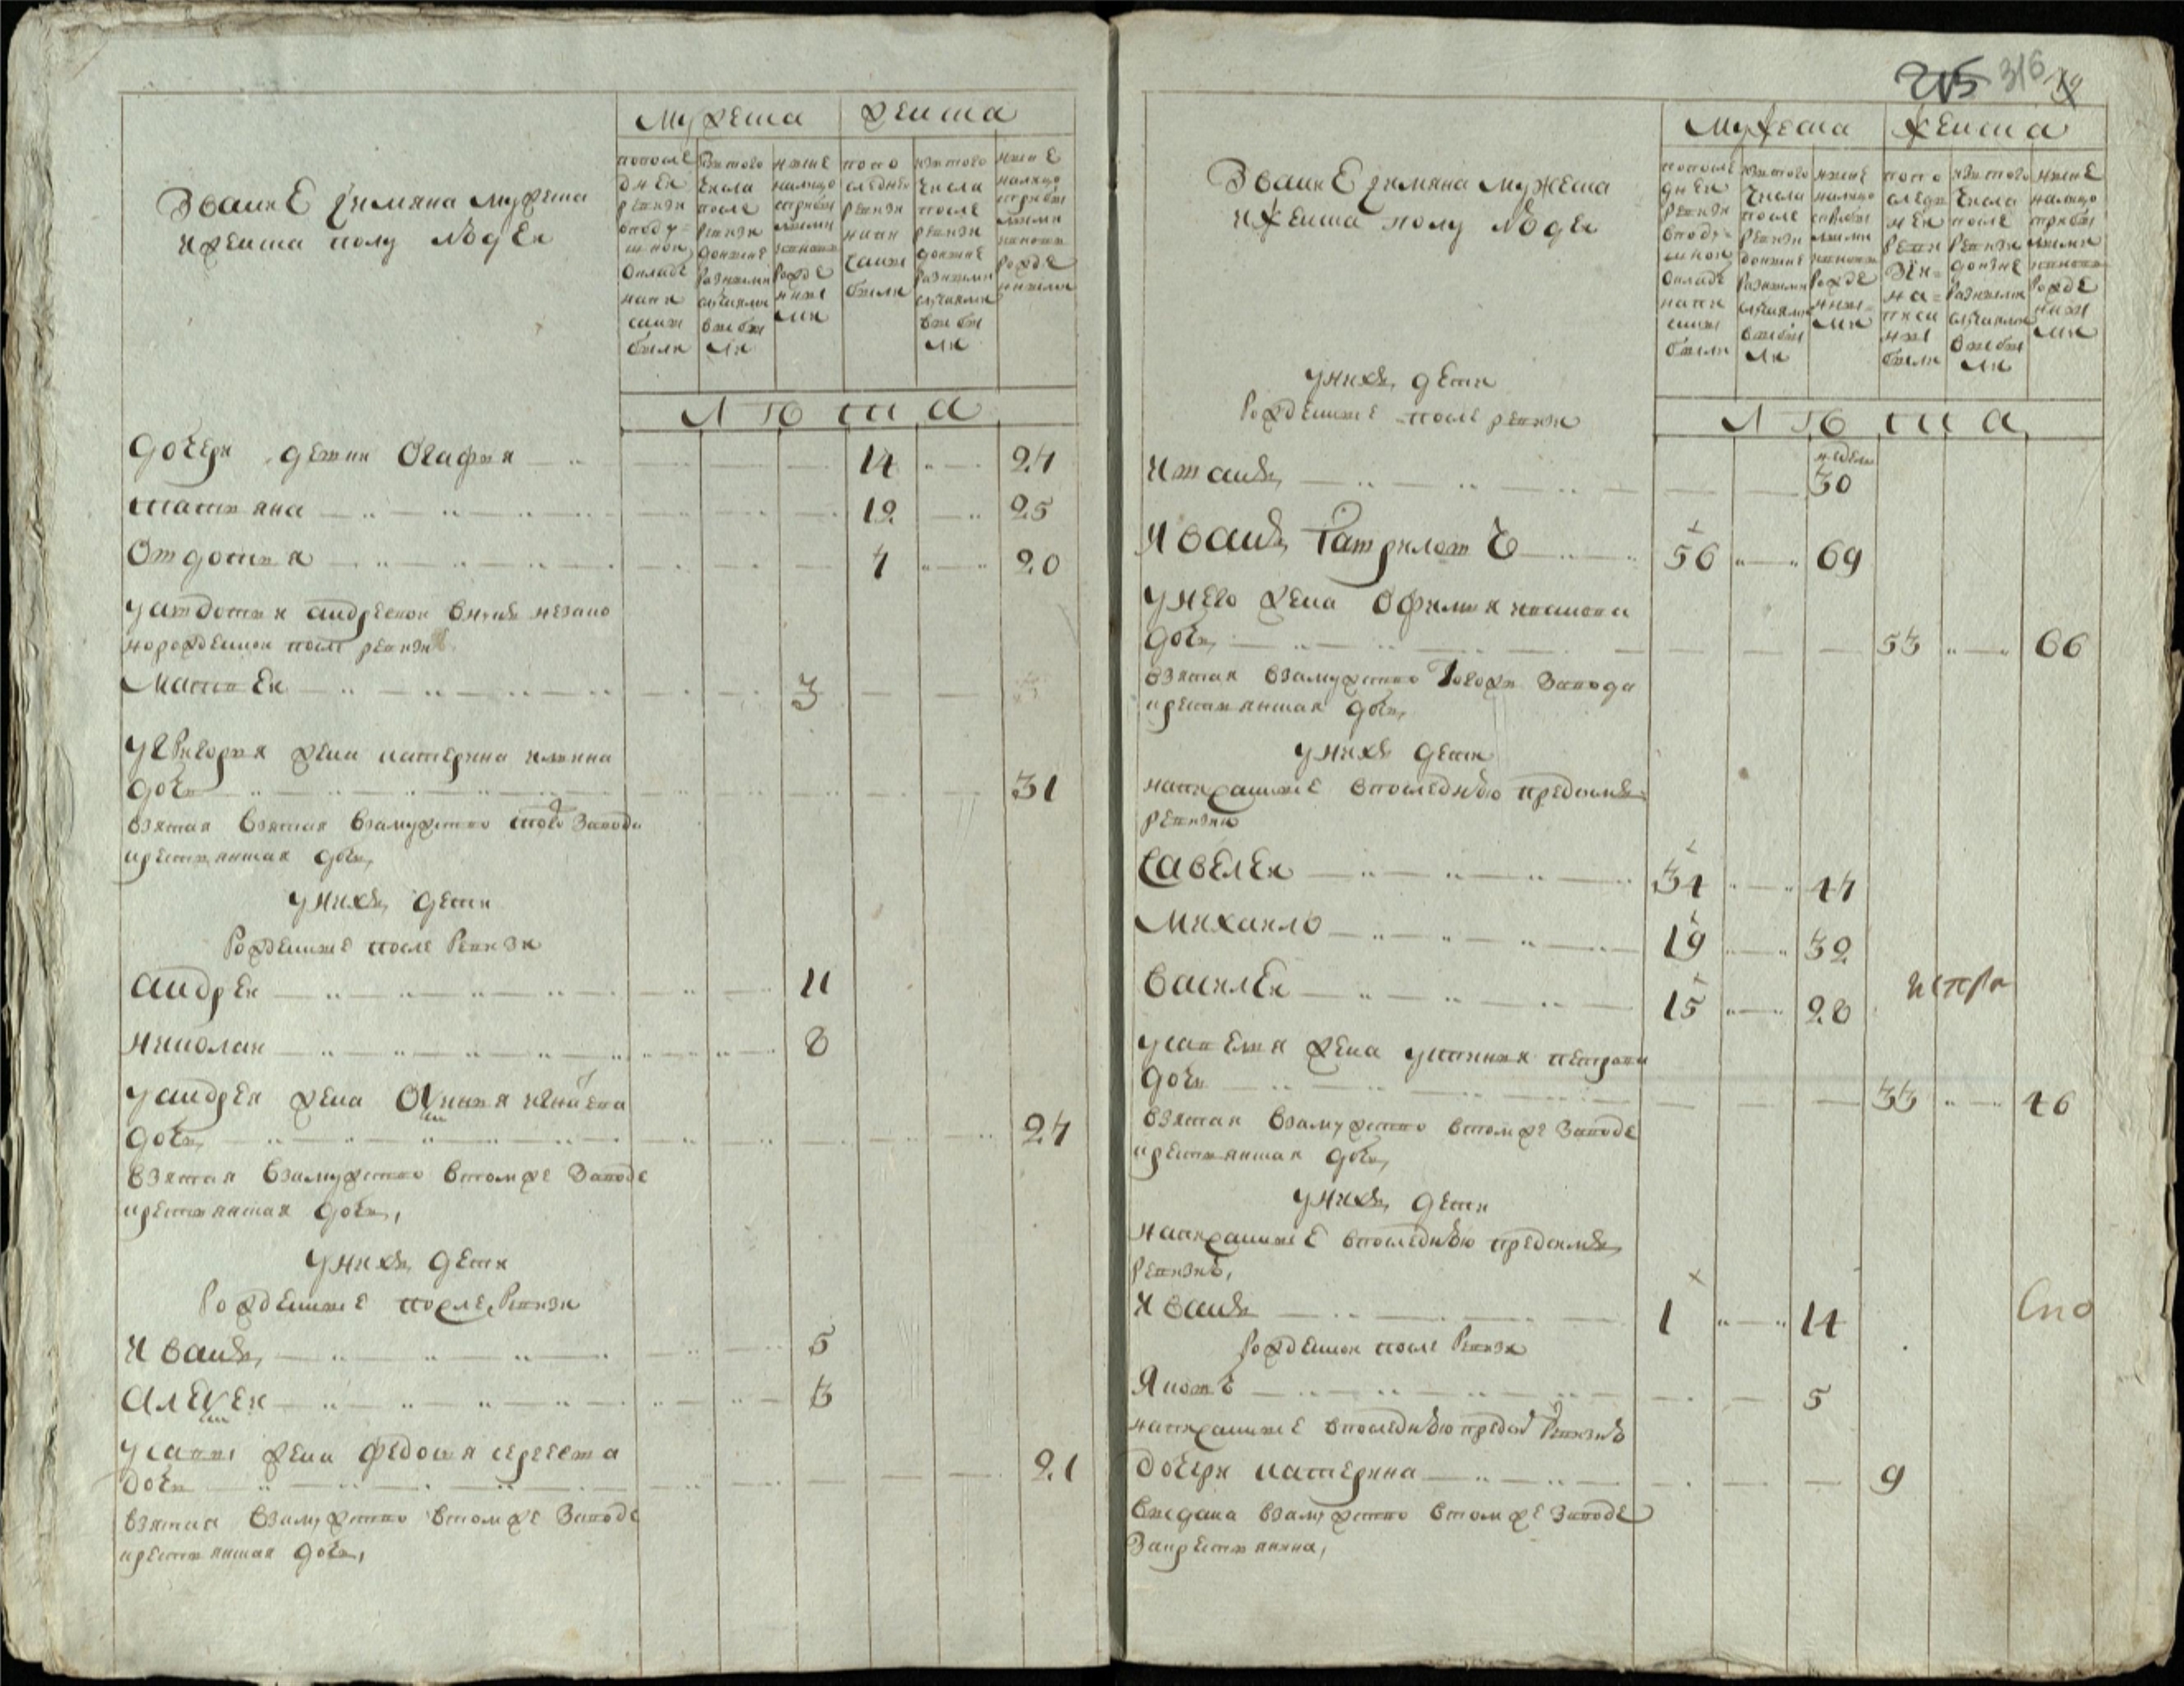 Звание и имяна мужеска
и женска полу людей
мужеска
женска
по последней ревизи в подушной окладе написаны были
из того числа после ревизи до ныне разными случаями выбыли
ныне налицо с прибылыми и вновь рожденными
по последней ревизи написаны были
из того числа после ревизи до ныне разными случаями выбыли
ныне налицо с прибылыми и вновь рожденными
лѣта
дочери девки Огафия 14 27
татьяна 12 25
Овдотья 7 20
у авдотьи андреевой
рожденной после ревизи
Матвей 3
у григорья жена катерина
дочь 31
взятая взятая взамужство того завода
крестьянская дочь,
у них дети
Рожденные после Ревизи
андрей 11
николай 8
у андрея жена
дочь, 27
взятая взамужство в том же заводе
крестьянская дочь,
у них дети
Рожденные после Ревизи
Иванъ, 5
алексей 3
у савы жена федосья сергеева
дочь 21
взятая взамужство в том же заводе
крестьянская дочь,
215 316
Звание и имяна мужеска
и женска полу людей
мужеска
женска
по последней ревизи в подушной окладе написаны были
из того числа после ревизи до ныне разными случаями выбыли
ныне налицо с прибылыми и вновь рожденными
по последней ревизи написаны были
из того числа после ревизи до ныне разными случаями выбыли
ныне налицо с прибылыми и вновь рожденными
лѣта
у них дети
Рожденные после ревизи
недель
30
Иванъ Гаврилов 56 69
у него жена Офимья иванова
дочь, 53 66
взятая взамужство завода
крестьянская дочь,
у них дети
написанные в последнюю пред симъ
ревизию
Савелей 34 47
Михаило 19 32
василей 15 28
испра
у савелья жена устинья петрова
дочь 33 46
взятая взамужство в том же заводе
крестьянская дочь,
у них дети
написанные в последнюю пред симъ
ревизию,
Иванъ 1 14
Рожденной после Ревизи
Яковъ 5
написанные в последнюю пред Ревизию
дочери катерина 9
выдана взамужство в том же заводе
за крестьянина,